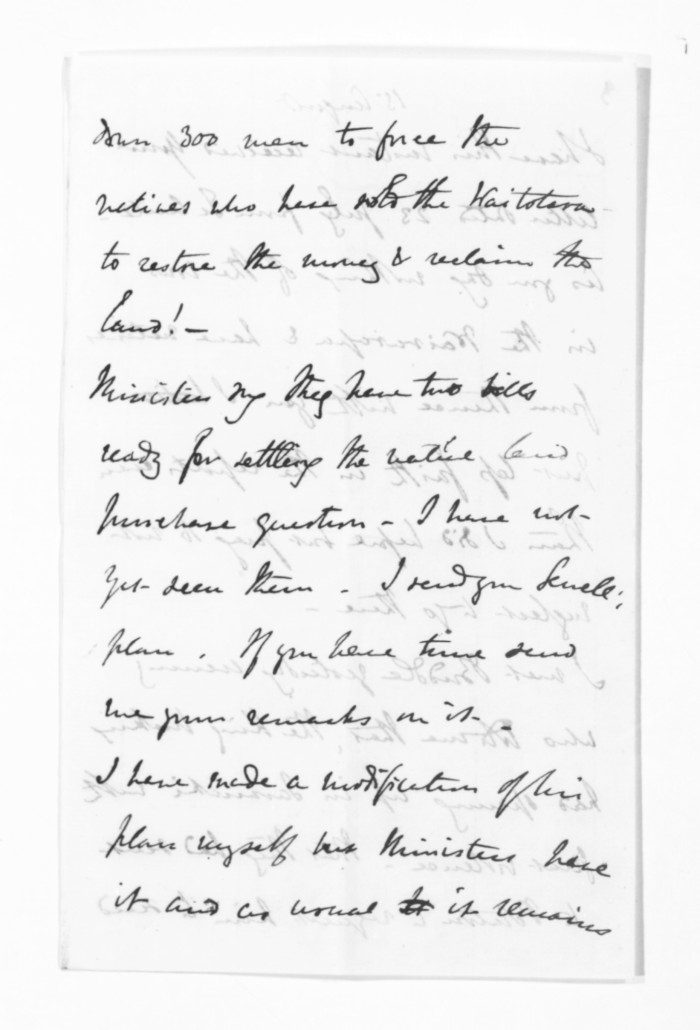 down 300 men to force the
natives who have sold the Waitotara
to restore the money & reclaim the
land! —
Ministers say they have two bills
ready for settling the native land
purchase question - I have not
yet seen them - I send you Sewell's
plan. If you have time send
me your remarks on it -
I have made a modification of his
plan myself but Ministers have
it and as usual it remains